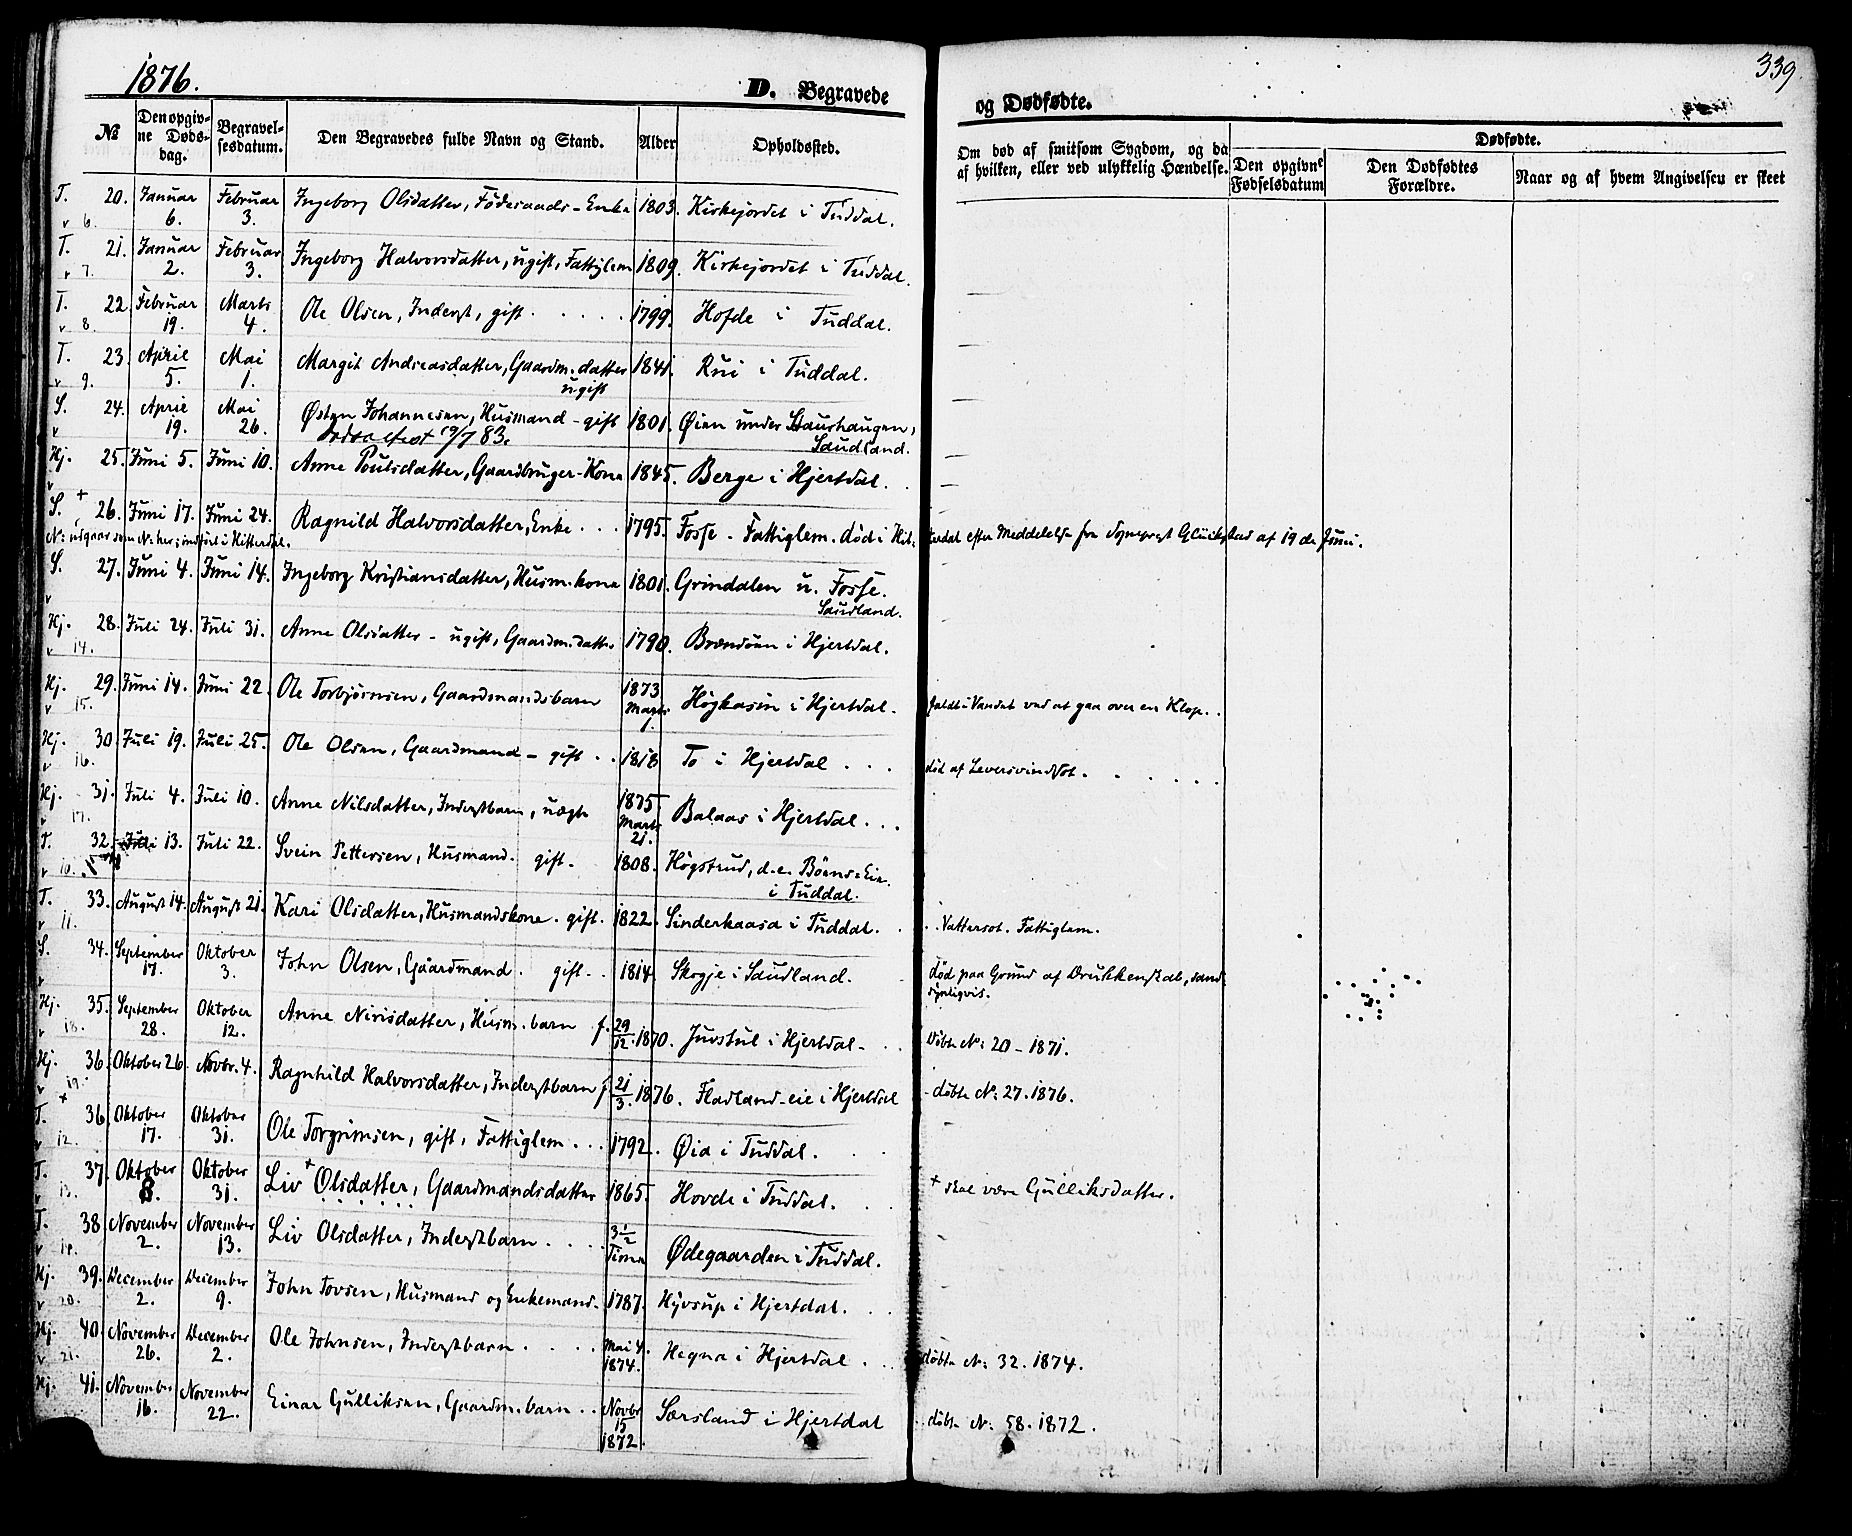 1876.
D. Begravede
og Dødfødte.
339.
№
Den opgivne Dødsdag.
Begravelsesdatum.
Den Begravedes fulde Navn og Stand.
Alder
Opholdssted.
Om død af smitsom Sygdom, og da af hvilken, eller ved ulykkelig Hændelse.
Dødfødte.
Den opgivne Fødselsdatum
Den Dødfødtes Forældre.
Naar og af hvem Angivelsen er skeet
T. v 6. 20. Januar 6. Februar 3. Ingeborg Olsdatter, Føderaads-Enke 1803. Kirkejordet i Tuddal.
T. v 7. 21. Januar 2. Februar 3. Ingeborg Halvorsdatter, ugift, Fattiglem 1809. Kirkejordet i Tuddal.
T. v 8. 22. Februar 19. Marts 4. Ole Olsen, Inderst, gift . . . . . 1799. Hofde i Tuddal.
T. v 9. 23. April 5. Mai 1. Margit Andreasdatter, Gaardm. datter ugift 1841. Rui i Tuddal.
S. v 24. April 19. Mai 26. Østen Johannesen, Husmand - gift 1801. Øien under Staurhaugen, Saudland.
19/7 83.
Hj. v 25. Juni 5. Juni 10. Anne Poulsdatter, Gaardbruger-Kone 1845. Berge i Hjertdal.
S. + 26. Juni 17. Juni 24. Ragnild Halvorsdatter, Enke . . . 1795. Fosse - Fattiglem. død i Hitterdal efter Meddelelse fra Sognepræst Glückstad af 19de Juni.
N: udgaar som N: her; indført i Hitterdal.
S. v 27. Juni 4. Juni 14. Ingeborg Kristiansdatter, Husm. kone 1801. Grindalen u. Fosse. Saudland.
Hj. v 14. 28. Juli 24. Juli 31. Anne Olsdatter - ugift, Gaardm. datter 1790. Brændøen i Hjertdal.
Hj. v 15. 29. Juni 14. Juni 22. Ole Torbjørnsen, Gaardmandsbarn 1873 Marts 1. Høgkasin i Hjertdal. faldt i Vandet ved at gaa over en Klop. .
Hj. v 16. 30. Juli 19. Juli 25. Ole Olsen, Gaardmand - gift . . 1818 To i Hjertdal . . . død af Leversvindsot. . . . . . .
Hj. v 17. 31. Juli 4. Juli 10. Anne Nilsdatter, Inderstbarn, uægte 1875 Marts 21. Balaas i Hjertdal . . .
T. v 10. 32. Juli 13. Juli 22. Svein Pettersen, Husmand. gift. 1808. Høgstrud, d.e. Bøens-Eie. i Tuddal.
T. v 11. 33. August 14. August 21. Kari Olsdatter, Husmandskone. gift. 1822. Sinderkaasa i Tuddal. . . . Vattersot. Fattiglem.
S. v 34. September 17. Oktober 3. John Olsen, Gaardmand. gift. . 1814. Skogje i Saudland. død paa Grund af Drukkenskab, sandsynligvis.
Hj. v 18. 35. September 28. Oktober 12. Anne Nirisdatter, Husm. barn f. 29/12. 1870. Juvstul i Hjertdal - . . Døbte N: 20 - 1871.
Hj. v 19. 36. Oktober 26. Novbr. 4. Ragnhild Halvorsdatter, Inderstbarn f. 21/3. 1876. Fladland-eie i Hjertdal - døbte N: 27. 1876.
T. + v 12. 36. Oktober 17. Oktober 31. Ole Torgrimsen, gift, Fattiglem . . . 1792. Øia i Tuddal. . .
T. v 13. 37. Oktober 8. Oktober 31. Liv + Olsdatter, Gaardmandsdatter 1865. Hovde i Tuddal. . + skal være Gulliksdatter.
T. v 14. 38 November 2. November 13. Liv Olsdatter, Inderstbarn . . . . 3 1/2 Time Ødegaarden i Tuddal.
Hj. v 20. 39. December 2. December 9. John Tovsen, Husmand og Enkemand. 1787. Hyvsup i Hjertdal. . .
Hj. v 21. 40. November 26. December 2. Ole Johnsen, Inderstbarn . . . . Mai 4. 1874. Hegna i Hjertdal . . . døbte N: 32. 1874.
Hj. 41. November 16. November 22. Einar Gulliksen, Gaardm. barn . . Novbr 15 1872. Særsland i Hjertdal døbte N: 58. 1872.